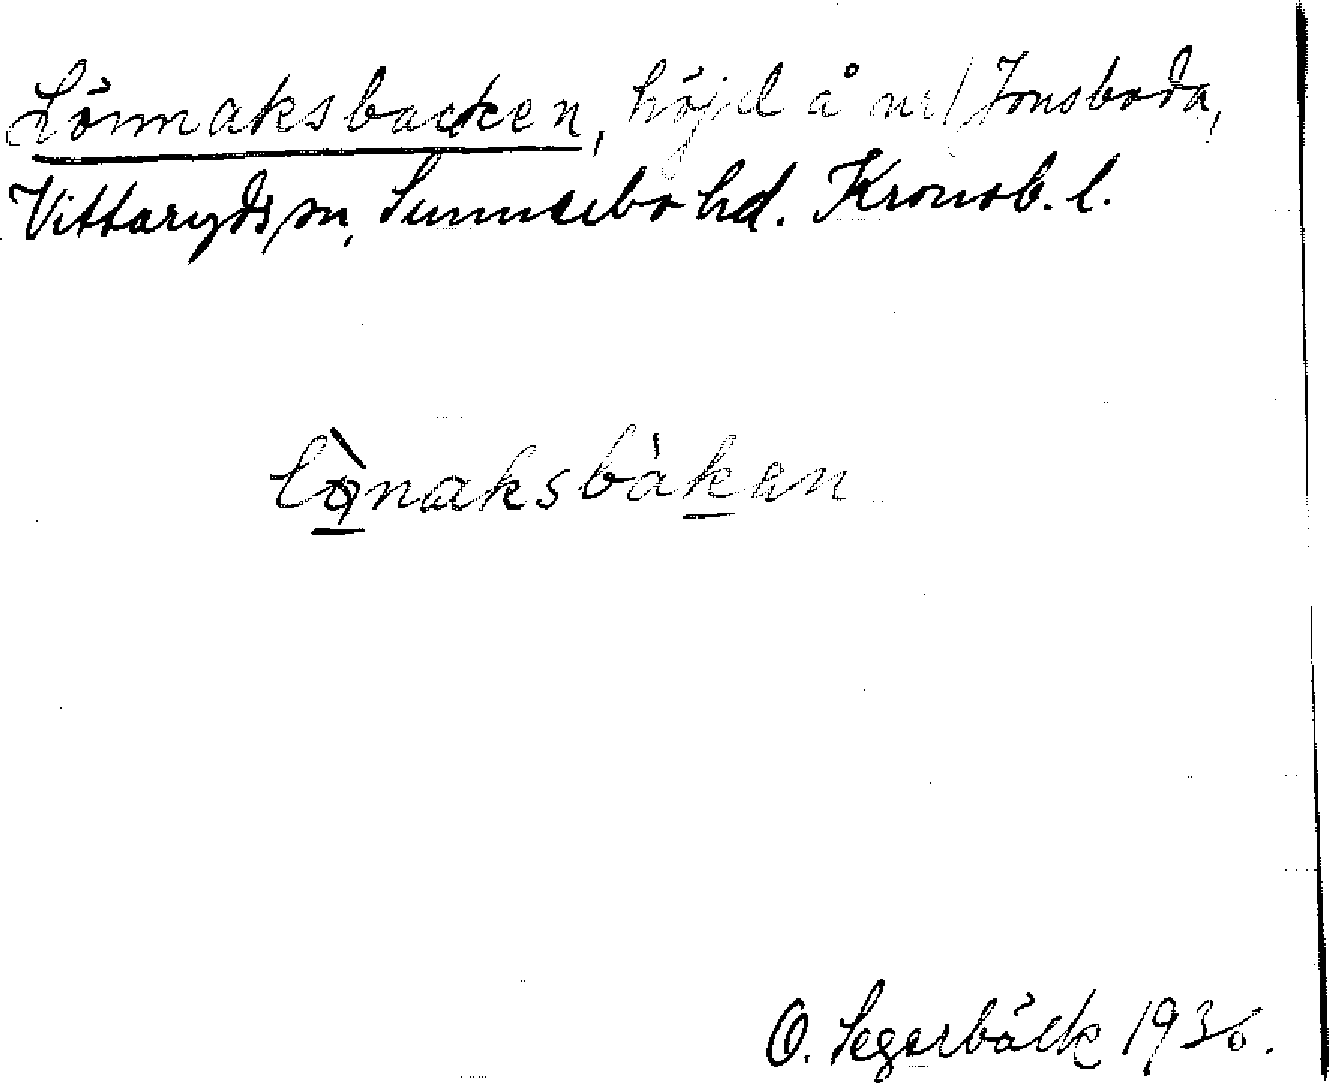 Lönnaksbacken, höjd å nr 1 Jonsboda,
Vittaryds sn, Sunnerbo hd. Kronob. l.
lònaksbàkan
O. Segerbäck 1936.